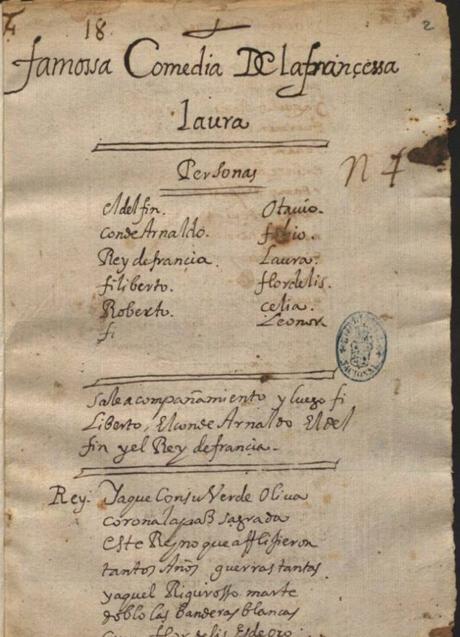 18
2
famossa Comedia De lafrancessa
laura
Personas
N 4
eldelfin. Otauio.
conde Arnaldo. fabio.
Rey defrancia. Laura.
filiberto. flordelis.
Roberto. celia.
fi Leonor
BIBLIOTECA NACIONAL
sale acompañamiento y luego fi
Liberto, El conde Arnaldo El del
fin y el Rey defrancia.
Rey. Ya que Con su Verde Oliva
corona la paz sagrada
este Reyno que afflisieron
tantos Años guerras tantas
y aquel Rigurosso marte
doblo las banderas blancas
flor y lis Es de oro